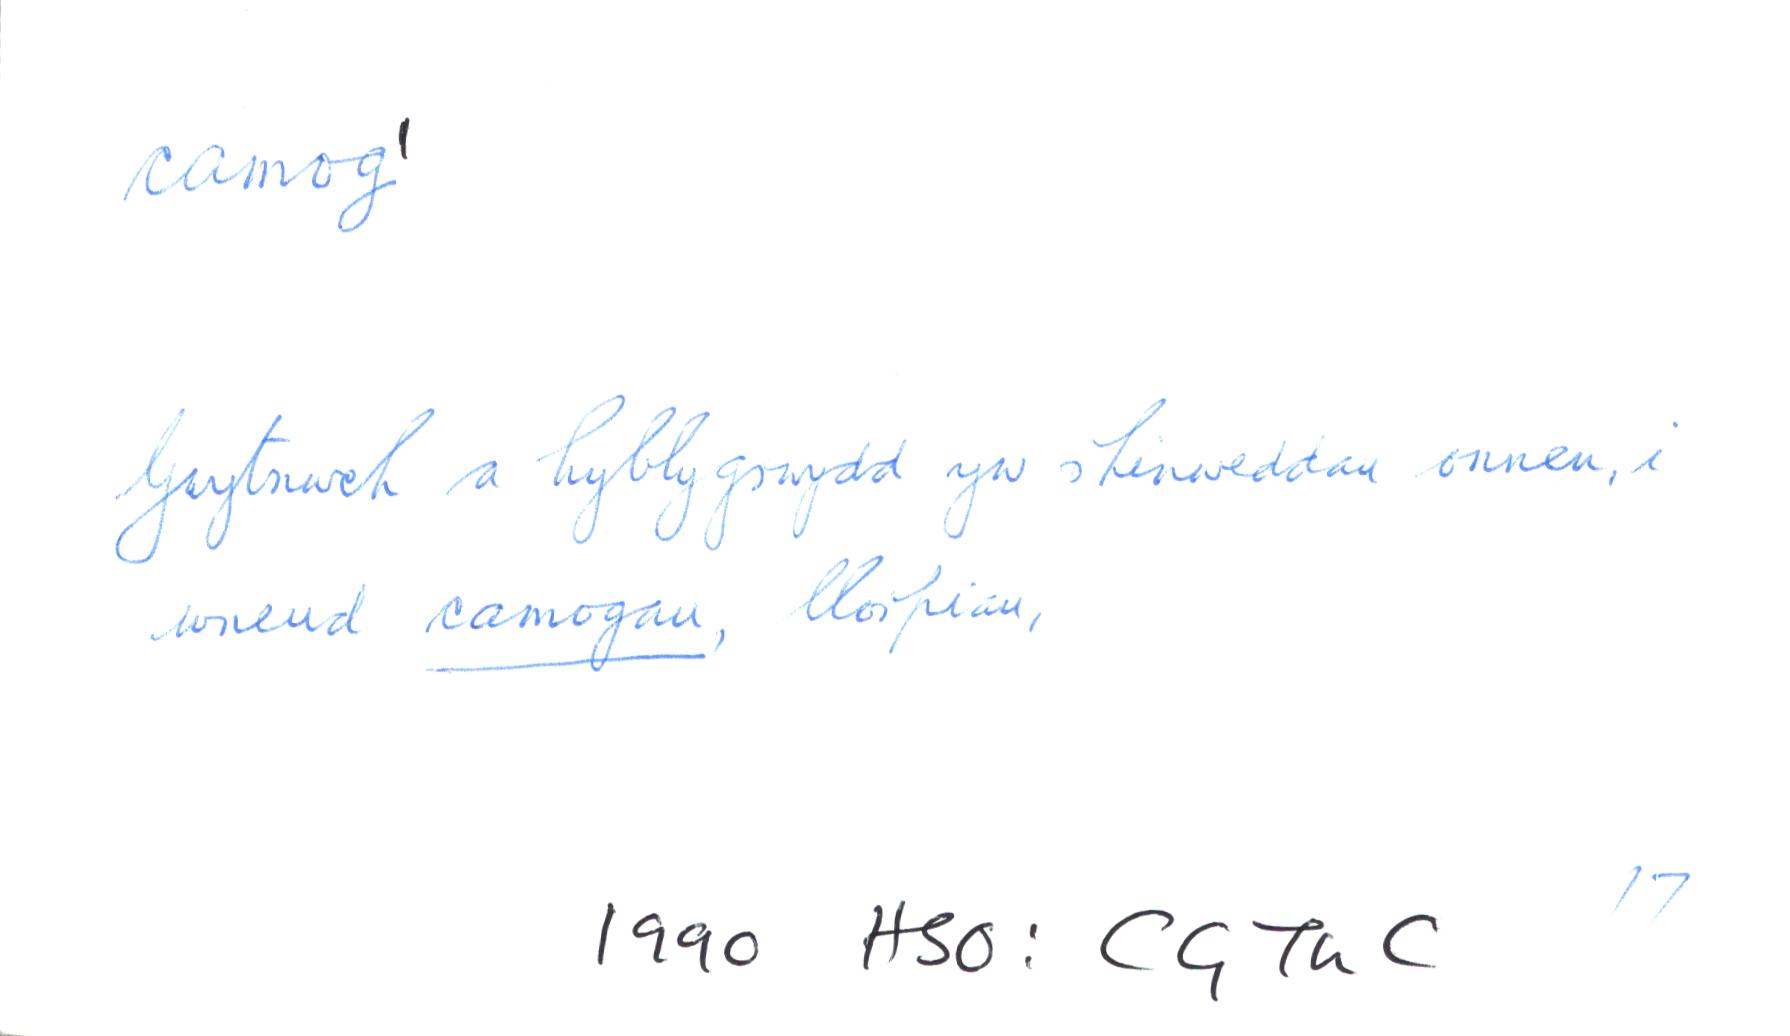 camog¹
Gwytnwch a hyblygrwydd yw rhinweddau onnen, i
wneud camogau, llorpiau,
17
1990 HSO: CGThC